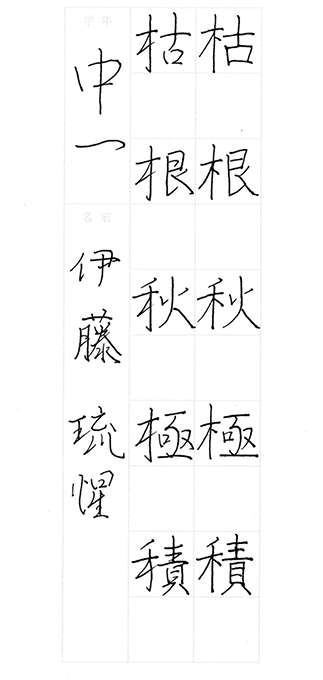 枯根秋極積
枯根秋極積
学年
中一
名前
伊藤 琉惺